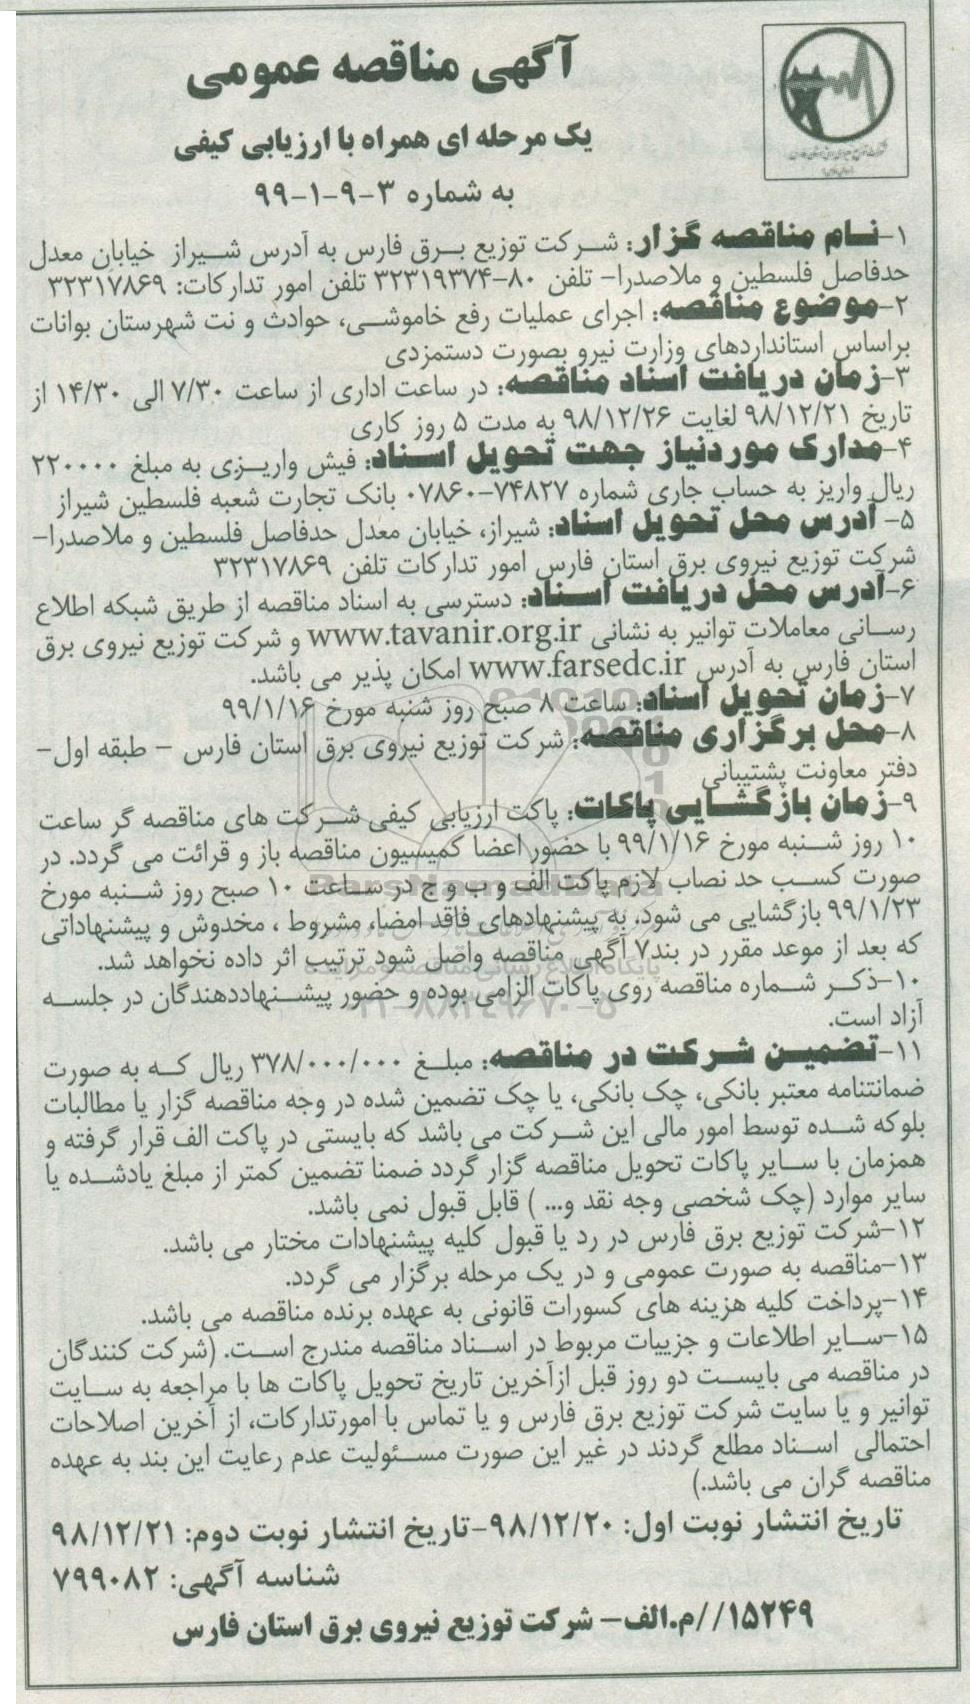 آگهی مناقصه عمومی
یک مرحله ای همراه با ارزیابی کیفی
به شماره ۳-۹-۱-۹۹
۱-نام مناقصه گزار: شرکت توزیع برق فارس به آدرس شیراز خیابان معدل
حدفاصل فلسطین و ملاصدرا- تلفن ۸۰-۳۲۳۱۹۳۷۴ تلفن امور تدارکات: ۳۲۳۱۷۸۶۹
۲-موضوع مناقصه: اجرای عملیات رفع خاموشی، حوادث و نت شهرستان بوانات
براساس استانداردهای وزارت نیرو بصورت دستمزدی
۳-زمان دریافت اسناد مناقصه: در ساعت اداری از ساعت ۷/۳۰ الی ۱۴/۳۰ از
تاریخ ۹۸/۱۲/۲۱ لغایت ۹۸/۱۲/۲۶ به مدت ۵ روز کاری
۴-مدارک موردنیاز جهت تحویل اسناد: فیش واریزی به مبلغ ۲۲۰۰۰۰
ریال واریز به حساب جاری شماره ۷۴۸۲۷-۰۷۸۶۰ بانک تجارت شعبه فلسطین شیراز
۵- آدرس محل تحویل اسناد: شیراز، خیابان معدل حدفاصل فلسطین و ملاصدرا-
شرکت توزیع نیروی برق استان فارس امور تدارکات تلفن ۳۲۳۱۷۸۶۹
۶-آدرس محل دریافت اسناد: دسترسی به اسناد مناقصه از طریق شبکه اطلاع
رسانی معاملات توانیر به نشانی www.tavanir.org.ir و شرکت توزیع نیروی برق
استان فارس به آدرس www.farsedc.ir امکان پذیر می باشد.
۷-زمان تحویل اسناد: ساعت ۸ صبح روز شنبه مورخ ۹۹/۱/۱۶
۸-محل برگزاری مناقصه: شرکت توزیع نیروی برق استان فارس - طبقه اول-
دفتر معاونت پشتیبانی
۹-زمان بازگشایی پاکات: پاکت ارزیابی کیفی شرکت های مناقصه گر ساعت
۱۰ روز شنبه مورخ ۹۹/۱/۱۶ با حضور اعضا کمیسیون مناقصه باز و قرائت می گردد. در
صورت کسب حد نصاب لازم پاکت الف و ب و ج در ساعت ۱۰ صبح روز شنبه مورخ
۹۹/۱/۲۳ بازگشایی می شود. به پیشنهادهای فاقد امضا، مشروط ، مخدوش و پیشنهاداتی
که بعد از موعد مقرر در بند۷ آگهی مناقصه واصل شود ترتیب اثر داده نخواهد شد.
۱۰-ذکر شماره مناقصه روی پاکات الزامی بوده و حضور پیشنهاددهندگان در جلسه
آزاد است.
۱۱-تضمین شرکت در مناقصه: مبلغ ۳۷۸/۰۰۰/۰۰۰ ریال که به صورت
ضمانتنامه معتبر بانکی، چک بانکی، یا چک تضمین شده در وجه مناقصه گزار یا مطالبات
بلوکه شده توسط امور مالی این شرکت می باشد که بایستی در پاکت الف قرار گرفته و
همزمان با سایر پاکات تحویل مناقصه گزار گردد ضمنا تضمین کمتر از مبلغ یادشده یا
سایر موارد (چک شخصی وجه نقد و... ) قابل قبول نمی باشد.
۱۲-شرکت توزیع برق فارس در رد یا قبول کلیه پیشنهادات مختار می باشد.
۱۳-مناقصه به صورت عمومی و در یک مرحله برگزار می گردد.
۱۴-پرداخت کلیه هزینه های کسورات قانونی به عهده برنده مناقصه می باشد.
۱۵-سایر اطلاعات و جزییات مربوط در اسناد مناقصه مندرج است. (شرکت کنندگان
در مناقصه می بایست دو روز قبل ازآخرین تاریخ تحویل پاکات ها با مراجعه به سایت
توانیر و یا سایت شرکت توزیع برق فارس و یا تماس با امورتدارکات، از آخرین اصلاحات
احتمالی اسناد مطلع گردند در غیر این صورت مسئولیت عدم رعایت این بند به عهده
مناقصه گران می باشد.)
تاریخ انتشار نوبت اول: ۹۸/۱۲/۲۰-تاریخ انتشار نوبت دوم: ۹۸/۱۲/۲۱
شناسه آگهی: ۷۹۹۰۸۲
۱۵۲۴۹//م.الف- شرکت توزیع نیروی برق استان فارس